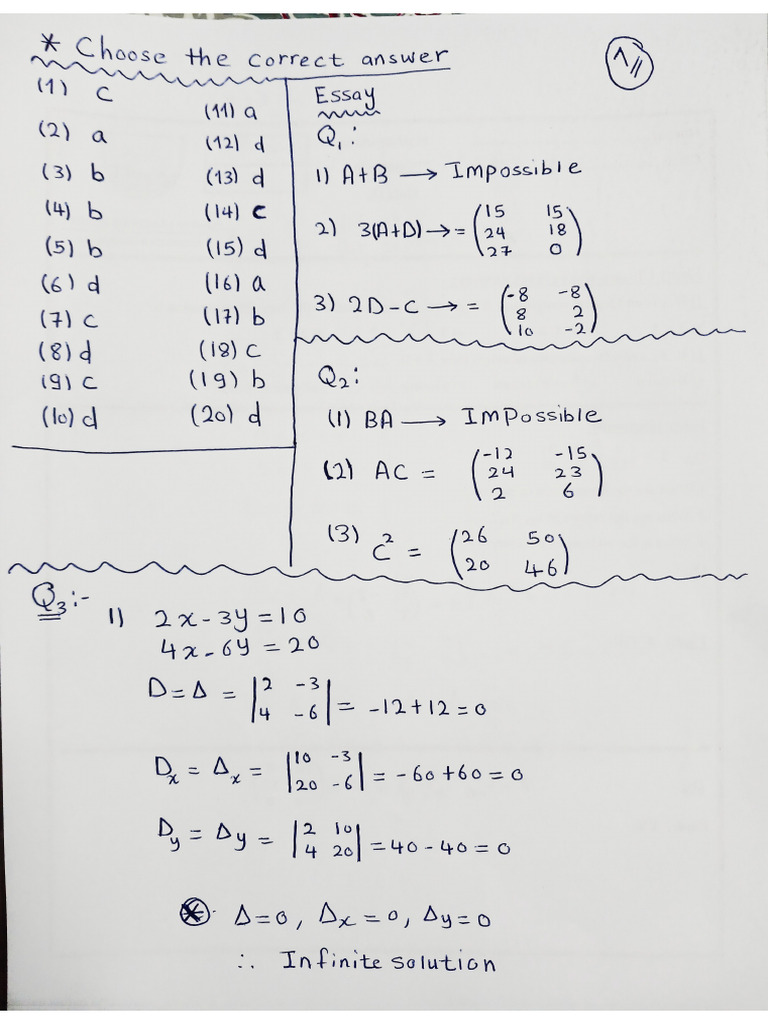 * Choose the correct answer
١//
(1) c
(2) a
(3) b
(4) b
(5) b
(6) d
(7) c
(8) d
(9) c
(10) d
(11) a
(12) d
(13) d
(14) c
(15) d
(16) a
(17) b
(18) c
(19) b
(20) d
Essay
Q1:
1) A+B → Impossible
2) 3(A+D) → = (15 15
24 18
27 0)
3) 2D-C → = (-8 -8
8 2
10 -2)
Q2:
(1) BA → ImPossible
(2) AC = (-12 -15
24 23
2 6)
(3) C² = (26 50
20 46)
Q3:-
1) 2x-3y=10
4x-6y=20
D=Δ = |2 -3
4 -6| = -12+12=0
Dx = Δx = |10 -3
20 -6| = -60+60=0
Dy = Δy = |2 10
4 20| =40-40=0
* Δ=0, Δx=0, Δy=0
∴ Infinite solution